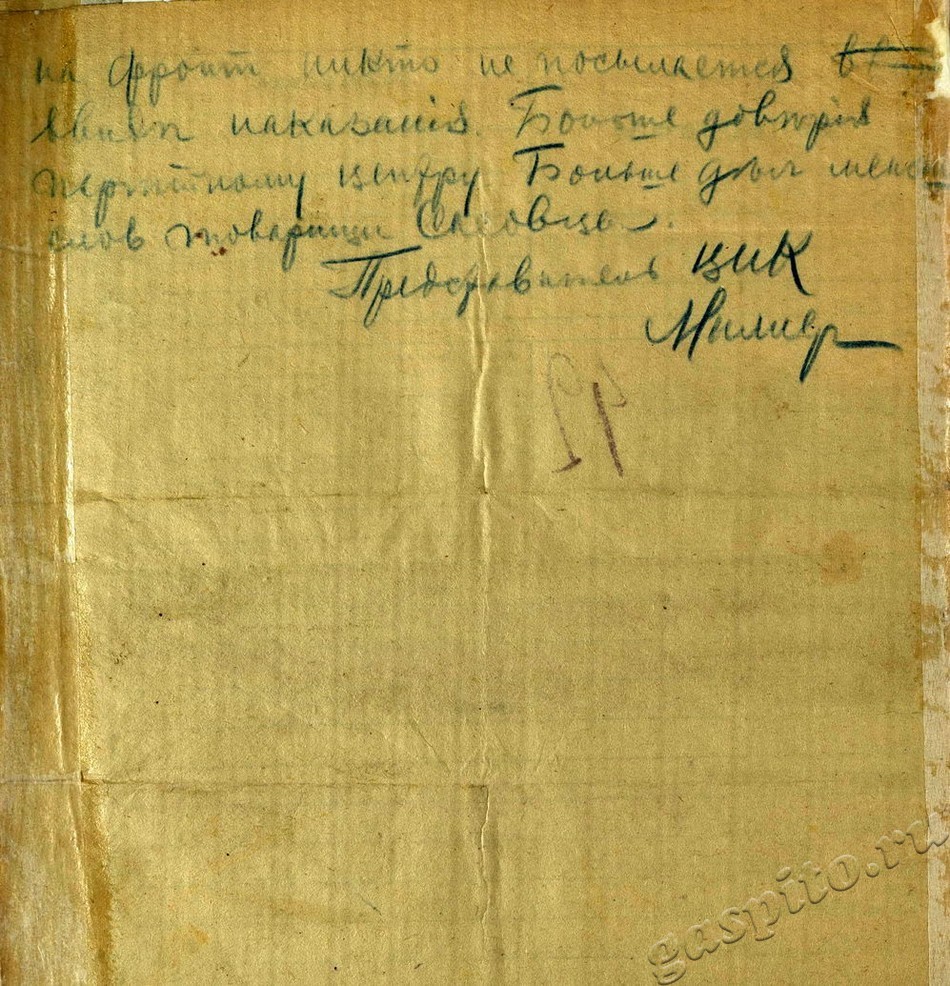 на фронт никто не посылается
наказанія. Больше довѣрія
партійному центру Больше дѣл менше
слов товарищи
Представитель ЦИК
Милнер
19
gaspito.ru